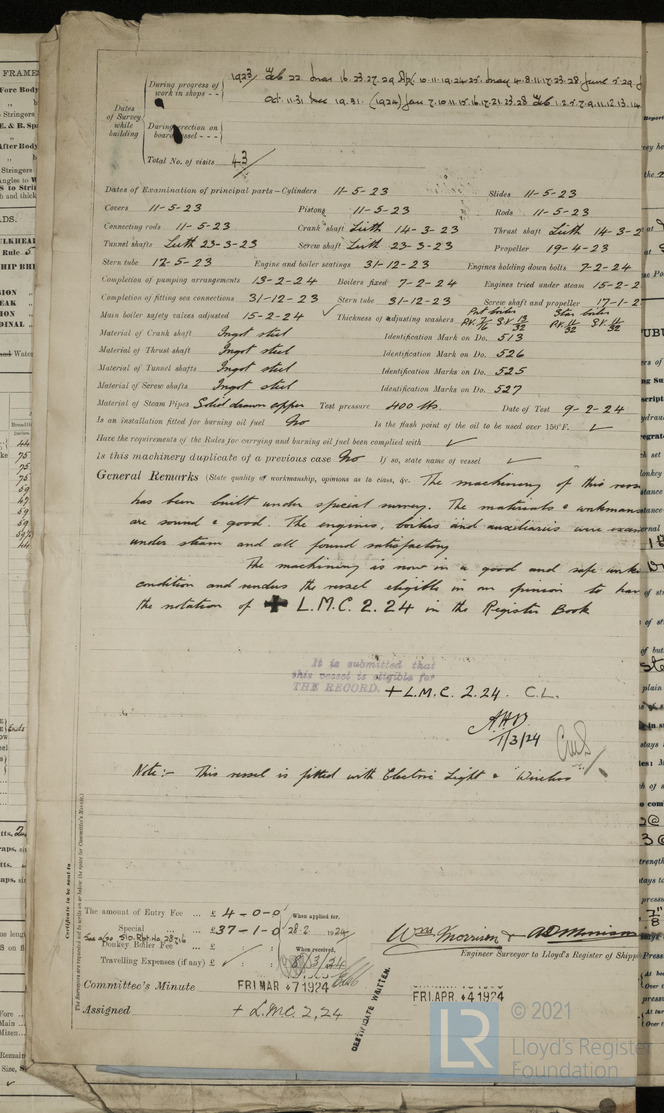 During progress of work in shops - - 1923/ Feb 22 Mar 16.23.27.29 Apl 10.11.19.24.25. May 4.8.11.17.23.28 June 5.29
Oct. 11.31 Dec 19.31. (1924) Jan 7.10.11.15.16.17.21.23.28 Feb 1.2.5.7.9.11.12.13.14
Dates of Survey while building
During erection on board vessel - - -
Total No. of visits 43
Dates of Examination of principal parts—Cylinders 11-5-23 Slides 11-5-23
Covers 11-5-23 Pistons 11-5-23 Rods 11-5-23
Connecting rods 11-5-23 Crank shaft Leith 14-3-23 Thrust shaft Leith 14-3-2
Tunnel shafts Leith 23-3-23 Screw shaft Leith 23-3-23 Propeller 19-4-23
Stern tube 17-5-23 Engine and boiler seatings 31-12-23 Engines holding down bolts 7-2-24
Completion of pumping arrangements 13-2-24 Boilers fixed 7-2-24 Engines tried under steam 15-2-2
Completion of fitting sea connections 31-12-23 Stern tube 31-12-23 Screw shaft and propeller 17-1-2
Main boiler safety valves adjusted 15-2-24 Thickness of adjusting washers Port boiler P.V. 7/16 S.V. 13/32 Star boiler P.V. 11/32 S.V. 11/32
Material of Crank shaft Ingot steel Identification Mark on Do. 513
Material of Thrust shaft Ingot steel Identification Mark on Do. 526
Material of Tunnel shafts Ingot steel Identification Marks on Do. 525
Material of Screw shafts Ingot steel Identification Marks on Do. 527
Material of Steam Pipes Solid drawn copper Test pressure 400 lbs. Date of Test 9-2-24
Is an installation fitted for burning oil fuel No Is the flash point of the oil to be used over 150°F. ✓
Have the requirements of the Rules for carrying and burning oil fuel been complied with ✓
Is this machinery duplicate of a previous case No If so, state name of vessel ✓
General Remarks (State quality of workmanship, opinions as to class, &c. The machinery of this vess
has been built under special survey. The materials & workmans
are sound & good. The engines, boilers and auxiliaries were exam
under steam and all found satisfactory
The machinery is now in a good and safe work
condition and renders the vessel eligible in our opinion to hav
the notation of + L.M.C. 2.24 in the Register Book
It is submitted that
this vessel is eligible for
THE RECORD. + L.M.C. 2.24. C.L.
1/3/24
Note:- This vessel is fitted with Electric Light & Wireless
Certificate to be sent to
The amount of Entry Fee ... £ 4-0-0 When applied for,
Special ... £ 37-1-0 28.2. 1924
See also S10. Rpt. No. 28716
Donkey Boiler Fee ... £ When received,
Travelling Expenses (if any) £ 8/3/24
Wm Morrison & A.D. Morrison
Engineer Surveyor to Lloyd's Register of Shipp
Committee's Minute FRI. MAR. 7 1924 FRI. APR. 4 1924
Assigned + L.M.C. 2.24
CERTIFICATE WRITTEN.
LR © 2021
Lloyd's Register
Foundation